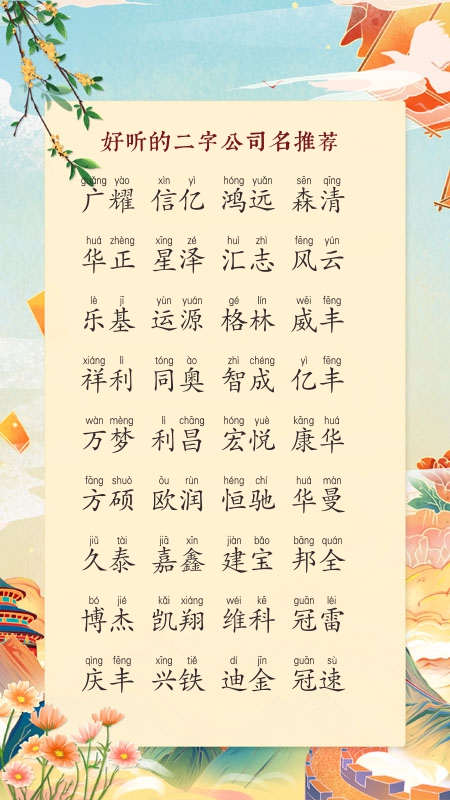 好听的二字公司名推荐
guǎng yào xìn yì hóng yuǎn sēn qīng
广耀 信亿 鸿远 森清
huá zhèng xīng zé huì zhì fēng yún
华正 星泽 汇志 风云
lè jī yùn yuán gé lín wēi fēng
乐基 运源 格林 威丰
xiáng lì tóng ào zhì chéng yì fēng
祥利 同奥 智成 亿丰
wàn mèng lì chāng hóng yuè kāng huá
万梦 利昌 宏悦 康华
fāng shuò ōu rùn héng chí huá màn
方硕 欧润 恒驰 华曼
jiǔ tài jiā xīn jiàn bǎo bāng quán
久泰 嘉鑫 建宝 邦全
bó jié kǎi xiáng wéi kē guān léi
博杰 凯翔 维科 冠雷
qìng fēng xīng tiě dí jīn guān sù
庆丰 兴铁 迪金 冠速